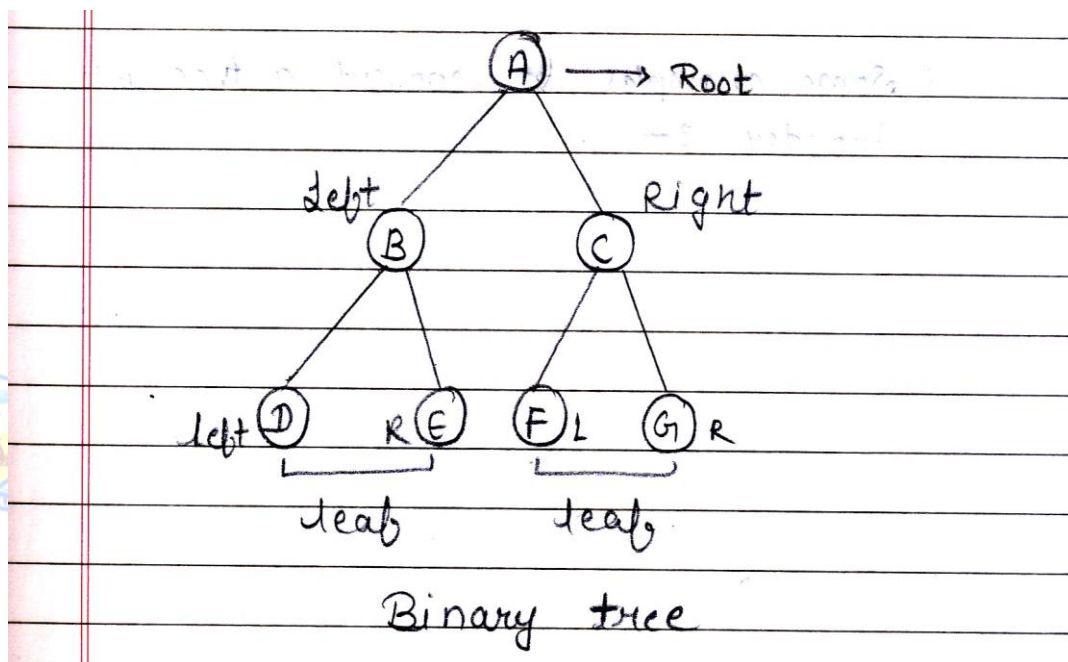 A → Root
Left Right
B C
left D R E F L G R
leaf leaf
Binary tree